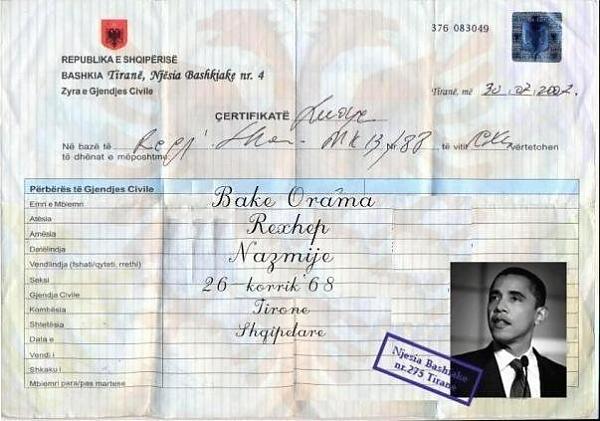 376 083049
REPUBLIKA E SHQIPËRISË
BASHKIA Tiranë, Njësia Bashkiake nr. 4
Zyra e Gjendjes Civile
Tiranë, më 30.07.2007.
ÇERTIFIKATË
Në bazë të Nr. të vitit vërtetohen
të dhënat e mëposhtme
Përbërës të Gjendjes Civile
Emri e Mbiemri Bake Orama
Atësia Rexhep
Amësia Nazmije
Datëlindja 26 korrik '68
Vendlindja (fshati/qyteti, rrethi) Tirone
Seksi Shqipdare
Gjendja Civile
Kombësia
Shtetësia
Data e
Vendi i
Shkaku i
Mbiemri para/pas martese
Njesia Bashkiake
nr.275 Tirane